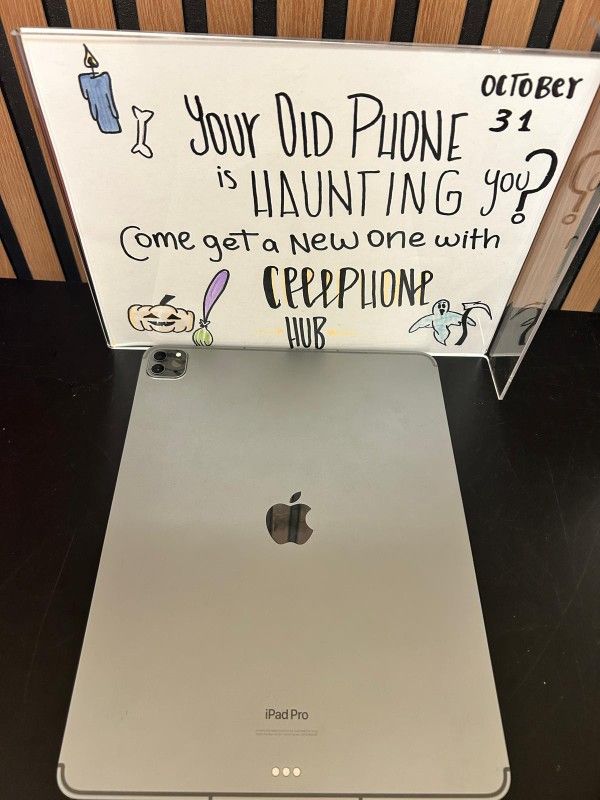 OCTOBER
31
Your Old PHONE
is HAUNTING you?
Come get a New one with
CELLPHONE
HUB
iPad Pro